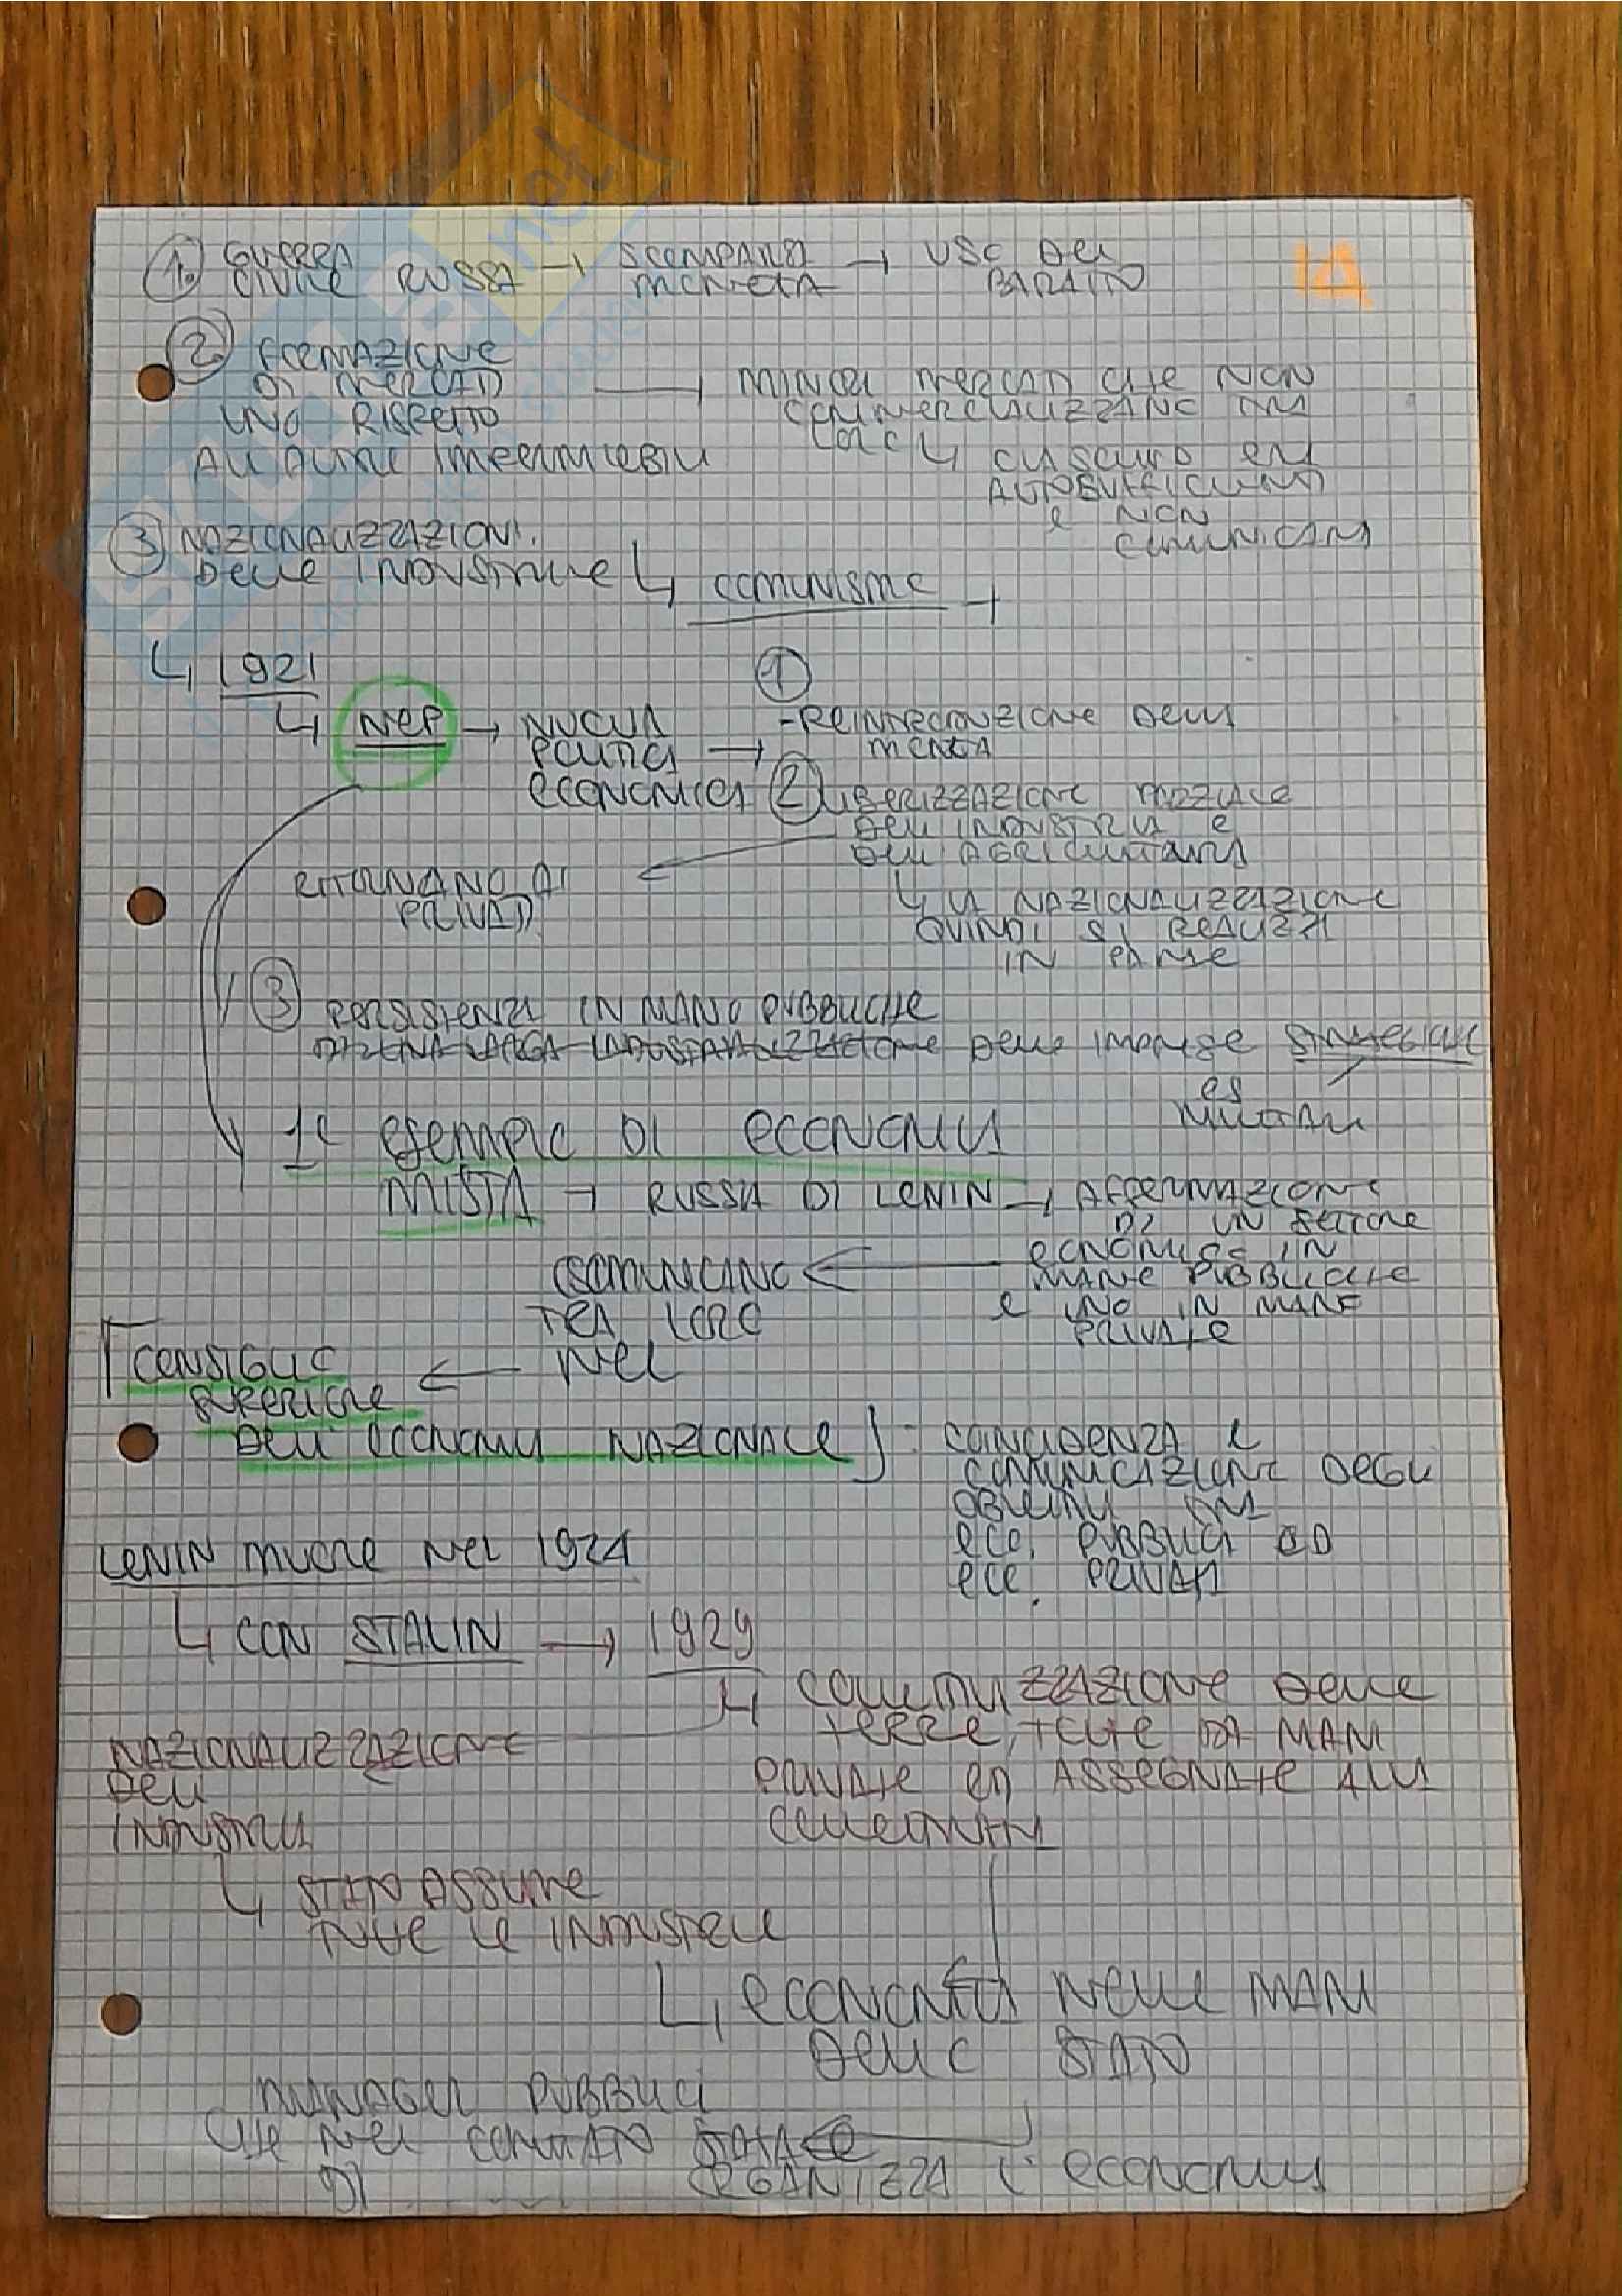 1. GUERRA
CIVILE RUSSA → SCOMPARSA MONETA → USO DEL BARATTO
14
2. FORMAZIONE
DI MERCATI → MINORI MERCATI CHE NON
UNO RISPETTO COMMERCIALIZZANO TRA
AGLI ALTRI IMPERMEABILI LORO ↳ CIASCUNO ERA
AUTOSUFFICIENTE
E NON
COMUNICANTI
3 NAZIONALIZZAZIONI
DELLE INDUSTRIE ↳ COMUNISMO →
↳ 1921
↳ NEP → NUOVA
POLITICA →
ECONOMICA
1
- REINTRODUZIONE DELLA
MONETA
2 LIBERIZZAZIONE PARZIALE
DELL INDUSTRIA E
DELL AGRICOLTURA
RITORNANO AI
PRIVATI
↳ LA NAZIONALIZZAZIONE
QUINDI SI REALIZZA
IN PARTE
3 PERSISTENZA IN MANO PUBBLICHE
DELLE IMPRESE STRATEGICHE
es
MILITARI
1° ESEMPIO DI ECONOMIA
MISTA → RUSSIA DI LENIN → AFFERMAZIONE
DI UN SETTORE
ECNOMICO IN
MANE PUBBLICHE
E UNO IN MANE
PRIVATE
COMUNICANO
TRA LORO
NEL
[CONSIGLIO
SUPERIORE
DELL ECONOMIA NAZIONALE] : COINCIDENZA E
COMUNICAZIONE DEGLI
OBIETTIVI TRA
ECO. PUBBLICA ED
ECO. PRIVATA
LENIN MUORE NEL 1924
↳ CON STALIN → 1929
↳ COLLETTIVIZZAZIONE DELLE
TERRE, TOLTE DA MANI
PRIVATE ED ASSEGNATE ALLA
COLLETTIVITÀ
NAZIONALIZZAZIONE
DELL
INDUSTRIA
↳ STATO ASSUME
TUTTE LE INDUSTRIE
↳ ECONOMIA NELLE MANI
DELLO STATO
MANAGER PUBBLICI
CHE NEL COMITATO STATALE
DI
ORGANIZZA L'ECONOMIA